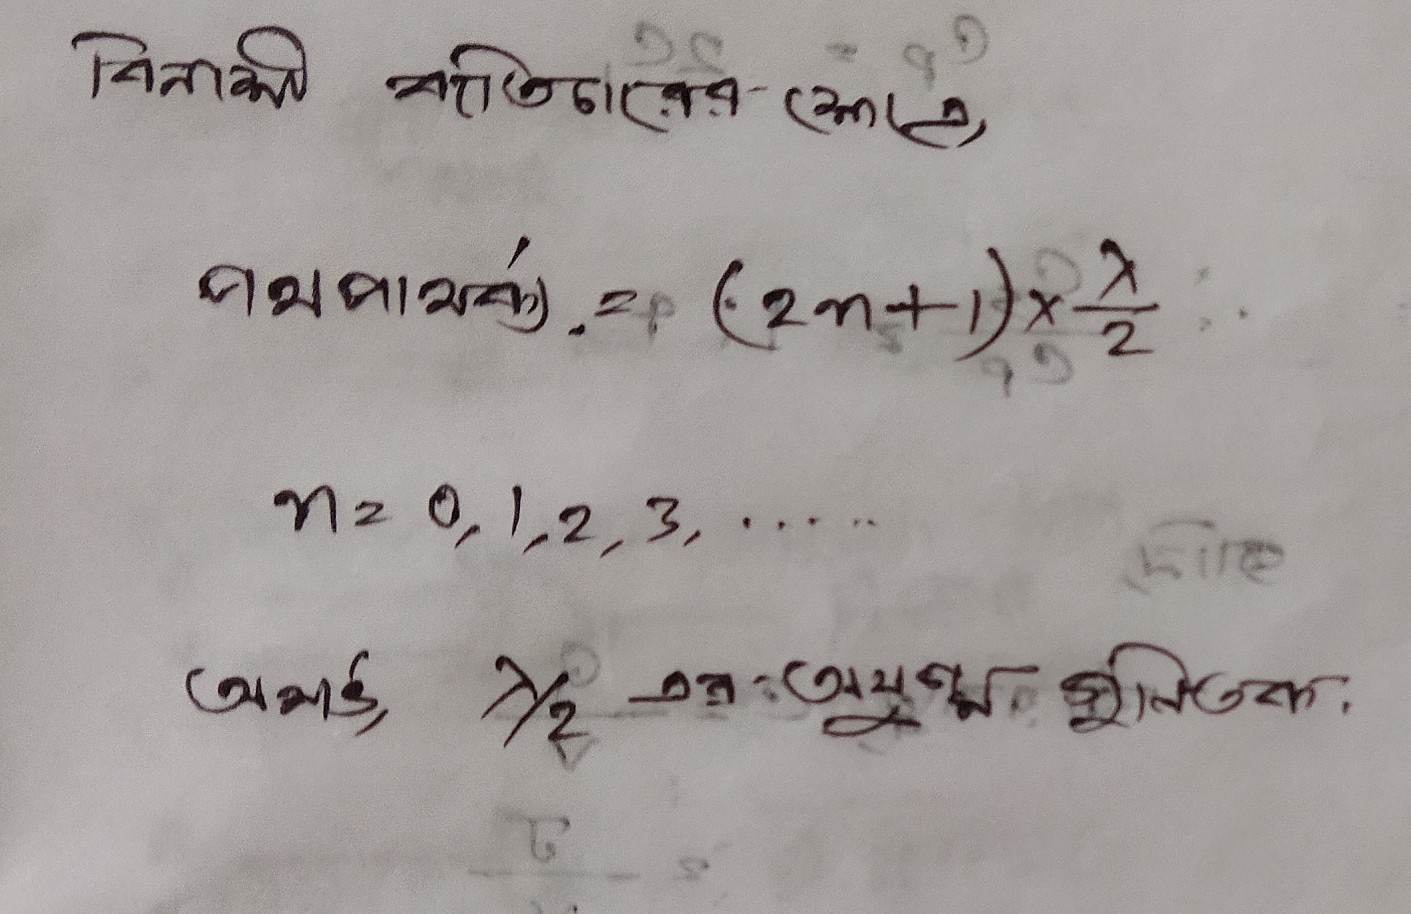 বিনাশী ব্যতিচারের ক্ষেত্রে,
পথপার্থক্য = (2n+1) × λ/2
n = 0, 1, 2, 3, .....
অর্থাৎ, λ/2 এর অযুগ্ম গুনিতক.